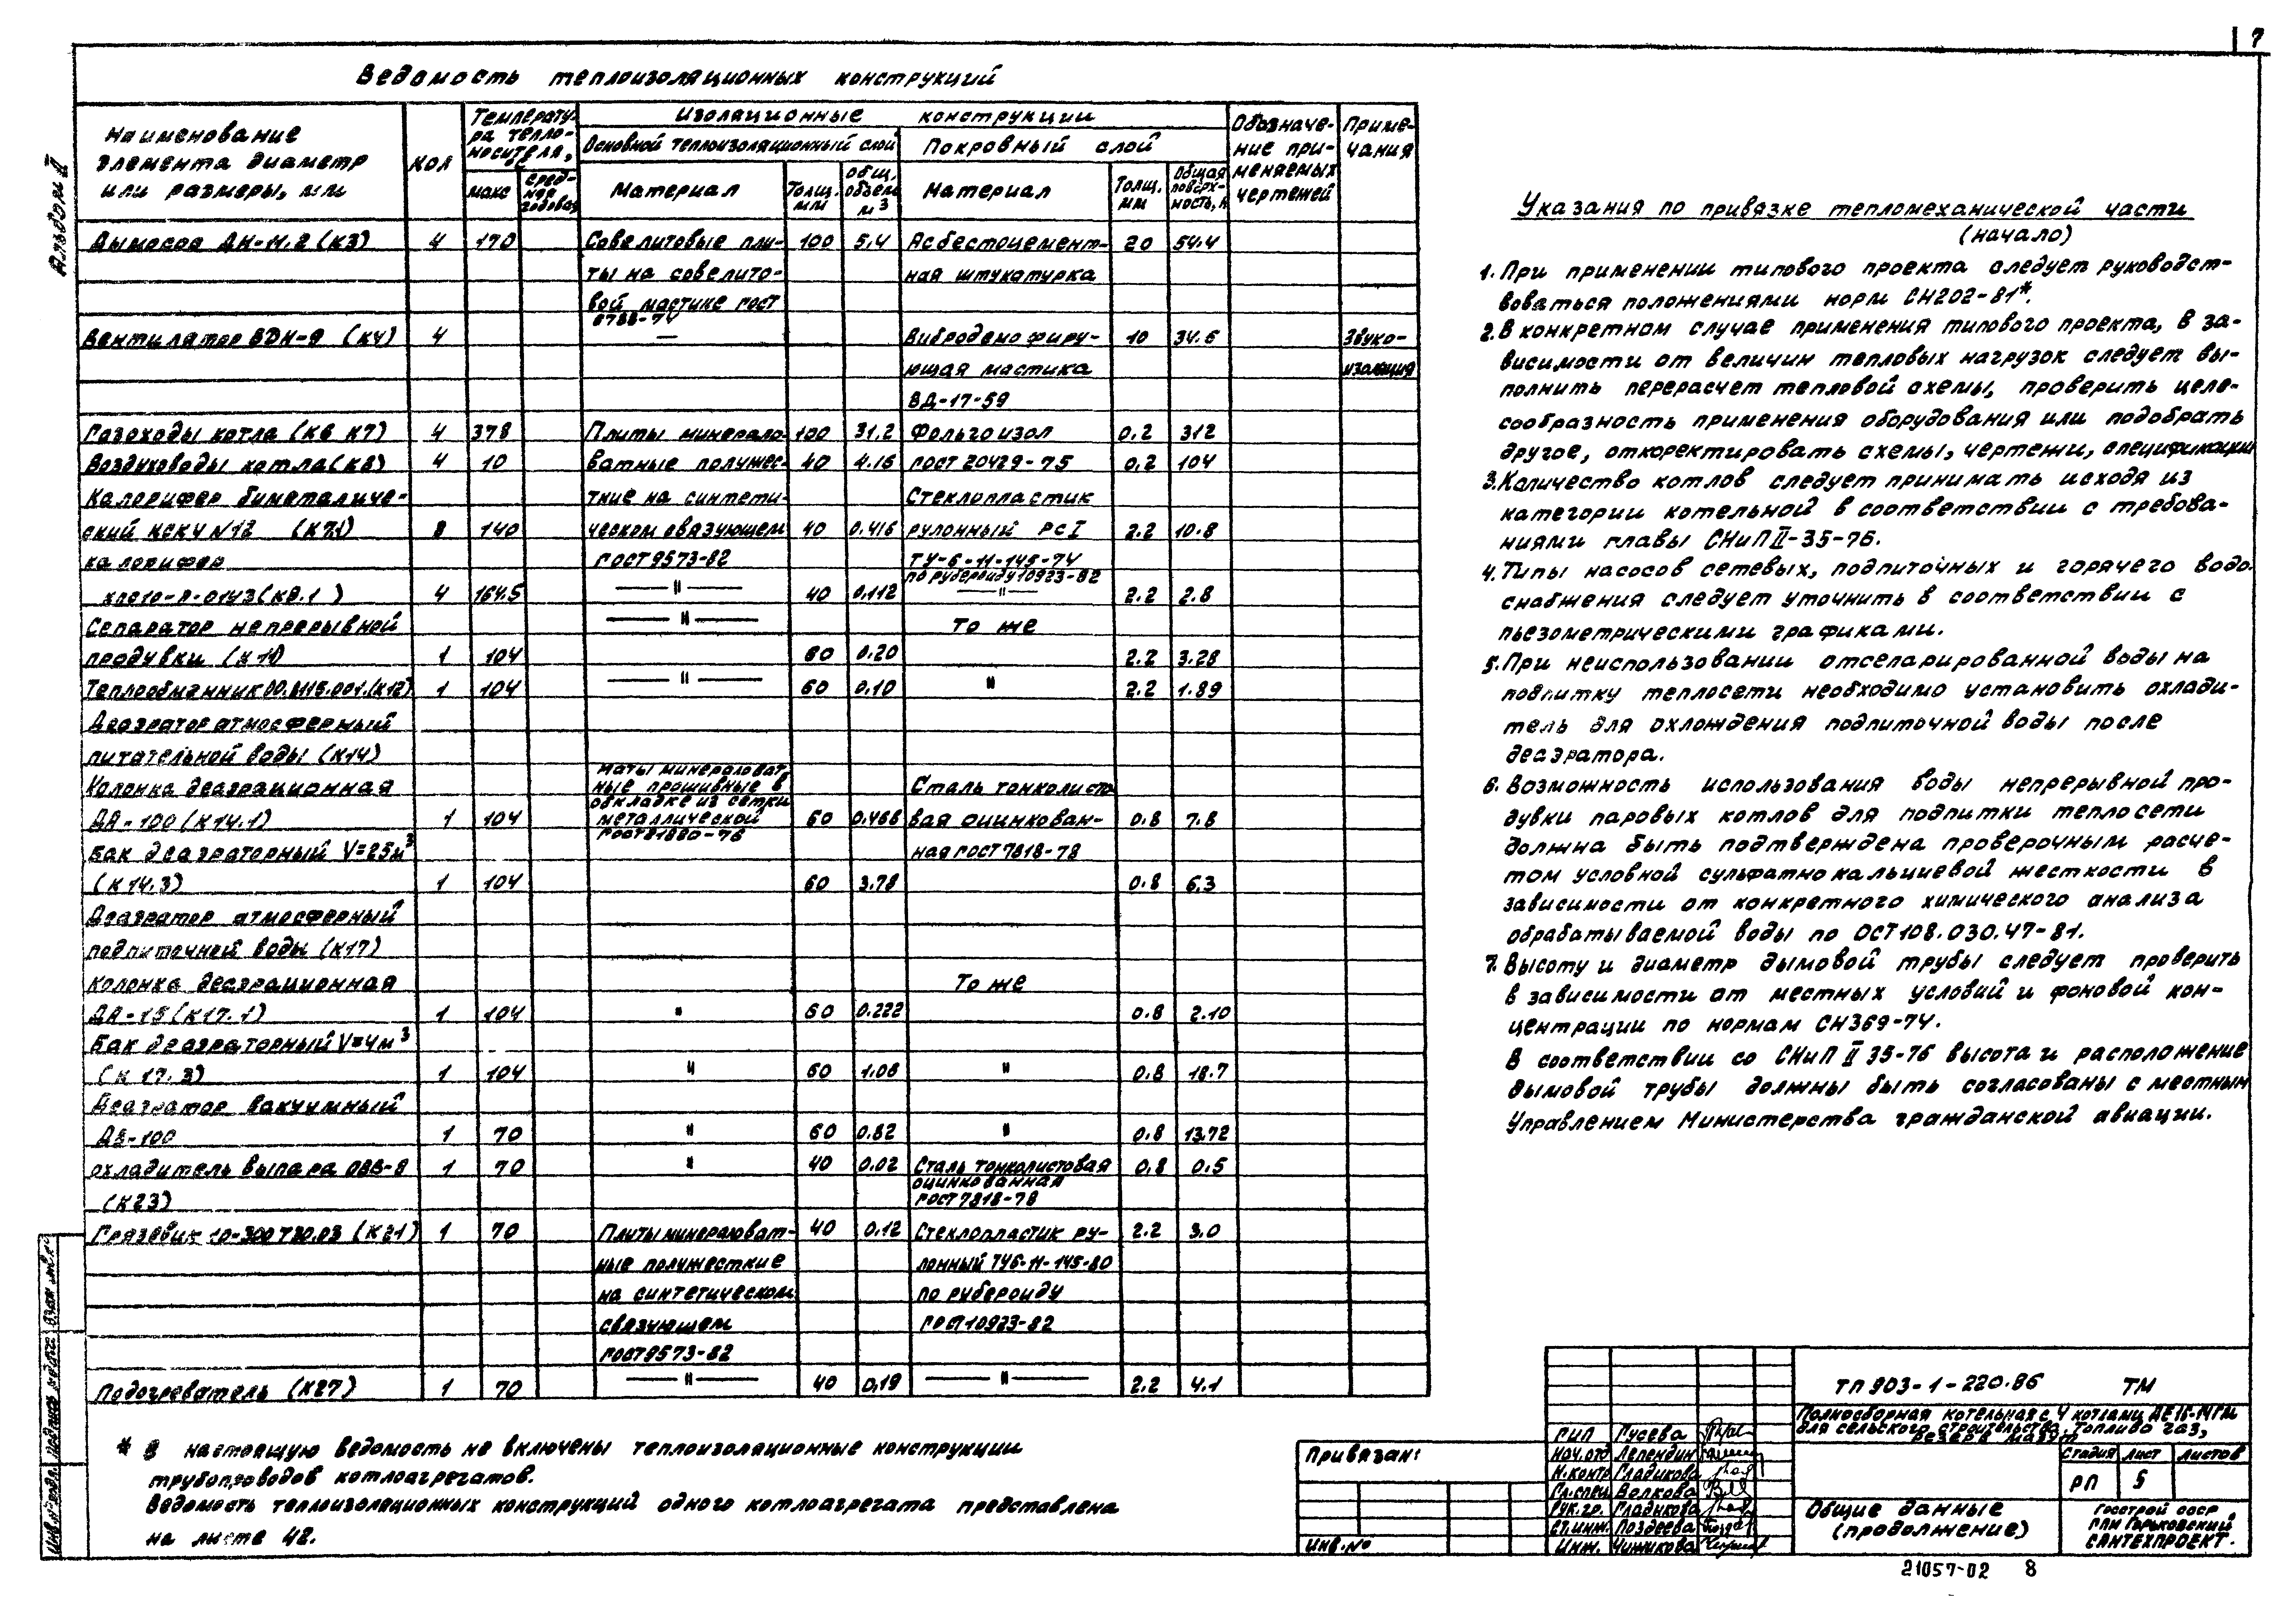 7
Альбом II
Ведомость теплоизоляционных конструкций
Наименование элемента диаметр или размеры, мм
Кол
Температура теплоносителя, °C
макс
средняя годовая
Изоляционные конструкции
Основной теплоизоляционный слой
Покровный слой
Материал
Толщ. мм
Общ. объем м3
Материал
Толщ. мм
Общая поверхность, м
Обозначение применяемых чертежей
Примечания
Дымосос ДН-11.2 (К3) 4 170 Совелитовые пли- 100 5.4 Асбестоцемент- 20 54.4
ты на совелито- ная штукатурка
вой мастике ГОСТ
6788-74
Вентилятор ВДН-9 (К4) 4 — Вибродемпфиру- 10 34.6 Звуко-
ющая мастика изоляция
ВД-17-59
Газоходы котла (К6 К7) 4 378 Плиты минерало- 100 31.2 Фольгоизол 0.2 312
Воздуховоды котла (К8) 4 10 ватные полужес- 40 4.16 ГОСТ 20429-75 0.2 104
Калорифер биметаличе- ткие на синтети- Стеклопластик
ский КСК4 №12 8 140 ческом связующем 40 0.416 рулонный РСТ 2.2 10.8
калорифер ГОСТ 9573-82 ТУ-6-11-145-74
по рубероиду 10923-82
4 164.5 —"— 40 0.112 —"— 2.2 2.8
Сепаратор непрерывной —"— То же
продувки (К11) 1 104 60 0.20 2.2 3.28
Теплообменник 00.8115.001.(К12) 1 104 —"— 60 0.10 " 2.2 1.89
Деаэратор атмосферный
питательной воды (К14)
Колонка деаэрационная маты минераловат- ные прошивные в Сталь тонколисто-
обкладке из сетки
ДА-100 (К14.1) 1 104 металлической 60 0.466 вая оцинкован- 0.8 7.8
ГОСТ 21880-76
Бак деаэраторный V=25м3 ная ГОСТ 7818-78
(К14.3) 1 104 60 3.78 0.8 63
Деаэратор атмосферный
подпиточной воды (К17)
колонка деаэрационная То же
ДА-15 (К17.1) 1 104 " 60 0.222 0.8 2.10
Бак деаэраторный V=4м3
(К 17.3) 1 104 " 60 1.06 " 0.8 18.7
Деаэратор вакуумный
ДВ-100 1 70 " 60 0.82 " 0.8 13.72
охладитель выпара ОВВ-8 1 70 " 40 0.02 Сталь тонколистовая 0.8 0.5
оцинкованная
(К23) ГОСТ 7818-78
Грязевик 10-300 Т30.03 (К21) 1 70 Плиты минераловат- 40 0.12 Стеклопластик ру- 2.2 3.0
ные полужесткие лонный ТУ6-11-145-80
на синтетическом по рубероиду
связующем ГОСТ 10923-82
ГОСТ 9573-82
Подогреватель (К27) 1 70 —"— 40 0.19 —"— 2.2 4.1
* В настоящую ведомость не включены теплоизоляционные конструкции
трубопроводов котлоагрегатов.
Ведомость теплоизоляционных конструкций одного котлоагрегата представлена
на листе 42.
Указания по привязке тепломеханической части
(начало)
1. При применении типового проекта следует руководст-
воваться положениями норм СН202-81*.
2. В конкретном случае применения типового проекта, в за-
висимости от величин тепловых нагрузок следует вы-
полнить перерасчет тепловой схемы, проверить целе-
сообразность применения оборудования или подобрать
другое, откоректировать схемы, чертежи, спецификации
3. Количество котлов следует принимать исходя из
категории котельной в соответствии с требова-
ниями главы СНиП II-35-76.
4. Типы насосов сетевых, подпиточных и горячего водо
снабжения следует уточнить в соответствии с
пьезометрическими графиками.
5. При неиспользовании отсепарированной воды на
подпитку теплосети необходимо установить охлади-
тель для охлождения подпиточной воды после
деаэратора.
6. Возможность использования воды непрерывной про-
дувки паровых котлов для подпитки теплосети
должна быть подтверждена проверочным расче-
том условной сульфатнокальциевой жесткости в
зависимости от конкретного химического анализа
обрабатываемой воды по ОСТ108.030.47-81.
7. Высоту и диаметр дымовой трубы следует проверить
в зависимости от местных условий и фоновой кон-
центрации по нормам СН369-74.
В соответствии со СНиП II 35-76 высота и расположение
дымовой трубы должны быть согласованы с местным
Управлением Министерства гражданской авиации.
Привязан:
Инв.№
ГИП Гусева
Нач.отд Лепендин
Н.контр Гладикова
Гл.спец Волкова
Рук.гр. Гладикова
Ст.инж. Поздеева
Инж. Чижикова
ТП 903-1-220.86 ТМ
Полносборная котельная с 4 котлами ДЕ16-14ГМ
для сельского строительства. Топливо газ,
резерв мазут
Стадия Лист Листов
РП 5
Общие данные
(продолжение)
Госстрой СССР
ГПИ Горьковский
Сантехпроект.
Инв.№ подл. Подпись и дата Взам. инв. №
21057-02 8